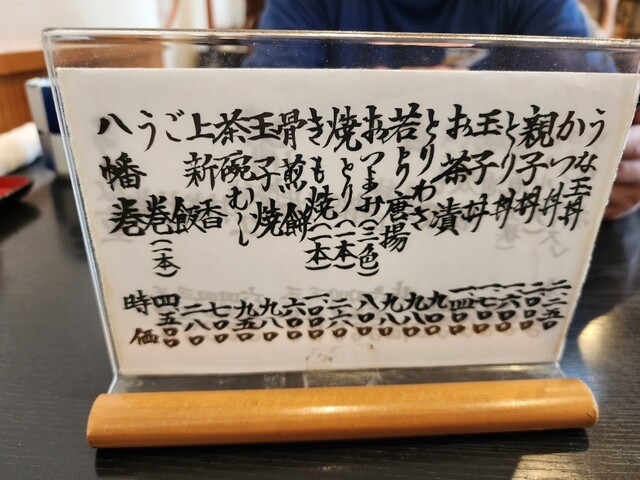 うな玉丼 二二五〇
かつ丼 二〇〇〇
親子丼 一六〇〇
とり丼 一七〇〇
玉子丼 一四〇〇
お茶漬 九〇〇
とりわさ 九八〇
若とり唐揚 九八〇
おつまみ(三色) 八〇〇
焼とり(一本) 二六〇
きも焼(一本) 一、〇〇〇
骨煎餅 六〇〇
玉子焼 九八〇
茶碗むし 九五〇
上新香 七〇〇
ご飯 二八〇
う巻(一本) 四五〇〇
八幡巻 時価